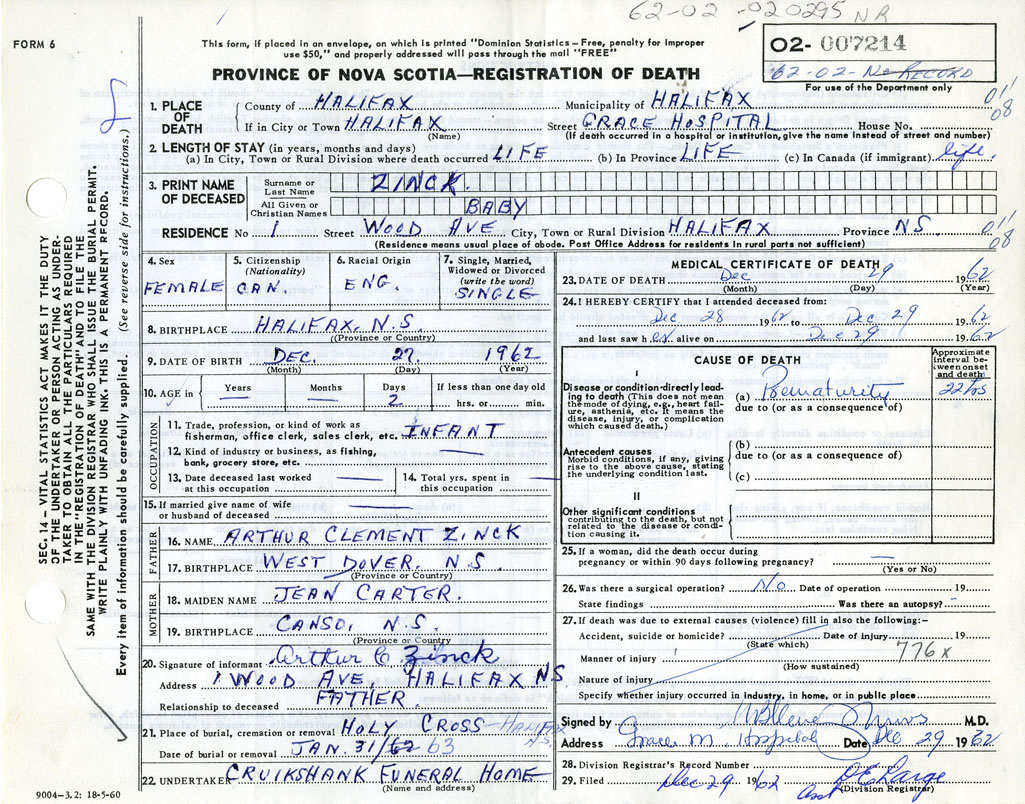 62-02-020295 NR
FORM 6
This form, if placed in an envelope, on which is printed "Dominion Statistics – Free, penalty for improper
use $50," and properly addressed will pass through the mail "FREE"
O2- 007214
62-02- No RECORD
For use of the Department only
PROVINCE OF NOVA SCOTIA—REGISTRATION OF DEATH
1. PLACE OF DEATH County of HALIFAX Municipality of HALIFAX 01'
If in City or Town HALIFAX Street GRACE HOSPITAL House No. 08
(Name) (If death occurred in a hospital or institution, give the name instead of street and number)
2. LENGTH OF STAY (in years, months and days)
(a) In City, Town or Rural Division where death occurred LIFE (b) In Province LIFE (c) In Canada (if immigrant) life.
3. PRINT NAME OF DECEASED
Surname or Last Name ZINCK.
All Given or Christian Names BABY
RESIDENCE No 1 Street WOOD AVE City, Town or Rural Division HALIFAX Province N.S. 01' 08
(Residence means usual place of abode. Post Office Address for residents in rural parts not sufficient)
4. Sex FEMALE
5. Citizenship (Nationality) CAN.
6. Racial Origin ENG.
7. Single, Married, Widowed or Divorced (write the word) SINGLE
8. BIRTHPLACE HALIFAX, N.S.
(Province or Country)
9. DATE OF BIRTH DEC. 27 1962
(Month) (Day) (Year)
10. AGE in Years — Months — Days 2 If less than one day old hrs. or min.
OCCUPATION
11. Trade, profession, or kind of work as
fisherman, office clerk, sales clerk, etc. INFANT
12. Kind of industry or business, as fishing,
bank, grocery store, etc. —
13. Date deceased last worked
at this occupation —
14. Total yrs. spent in
this occupation —
15. If married give name of wife
or husband of deceased —
FATHER
16. NAME ARTHUR CLEMENT ZINCK
17. BIRTHPLACE WEST DOVER, N.S.
(Province or Country)
MOTHER
18. MAIDEN NAME JEAN CARTER.
19. BIRTHPLACE CANSO, N.S.
(Province or Country)
20. Signature of informant Arthur C. Zinck
Address 1 WOOD AVE, HALIFAX N.S
Relationship to deceased FATHER
21. Place of burial, cremation or removal HOLY CROSS – HALIFAX N.S.
Date of burial or removal JAN. 31/62 63
22. UNDERTAKER CRUIKSHANK FUNERAL HOME
(Name and address)
MEDICAL CERTIFICATE OF DEATH
23. DATE OF DEATH Dec 29 1962
(Month) (Day) (Year)
24. I HEREBY CERTIFY that I attended deceased from:
Dec 28 1962 to Dec 29 1962
and last saw h er alive on Dec 29 1962
CAUSE OF DEATH
Approximate
interval be-
tween onset
and death:
I
Disease or condition directly lead-
ing to death (This does not mean
the mode of dying, e.g., heart fail-
ure, asthenia, etc. It means the
disease, injury, or complication
which caused death.)
(a) Prematurity 22 hrs
due to (or as a consequence of)
Antecedent causes
Morbid conditions, if any, giving
rise to the above cause, stating
the underlying condition last.
(b)
due to (or as a consequence of)
(c)
II
Other significant conditions
contributing to the death, but not
related to the disease or condi-
tion causing it.
25. If a woman, did the death occur during
pregnancy or within 90 days following pregnancy? —
(Yes or No)
26. Was there a surgical operation? No Date of operation 19
State findings Was there an autopsy? -
27. If death was due to external causes (violence) fill in also the following:-
Accident, suicide or homicide? Date of injury 19
(State which)
Manner of injury 776x
(How sustained)
Nature of injury
Specify whether injury occurred in industry, in home, or in public place
Signed by M.D.
Address Grace M. Hospital Date Dec 29 1962
28. Division Registrar's Record Number
29. Filed Dec 29 1962
(Division Registrar)
SEC. 14 – VITAL STATISTICS ACT MAKES IT THE DUTY
OF THE UNDERTAKER OR PERSON ACTING AS UNDER-
TAKER TO OBTAIN ALL THE PARTICULARS REQUIRED
IN THE "REGISTRATION OF DEATH" AND TO FILE THE
SAME WITH THE DIVISION REGISTRAR WHO SHALL ISSUE THE BURIAL PERMIT.
WRITE PLAINLY WITH UNFADING INK. THIS IS A PERMANENT RECORD.
Every item of information should be carefully supplied. (See reverse side for instructions.)
9004-3.2: 18-5-60